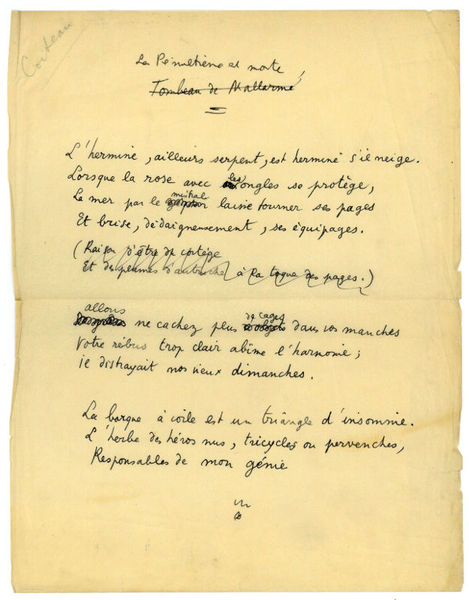 Cocteau
La Pénultième est morte
Tombeau de Mallarmé
L'hermine, ailleurs serpent, est hermine s'il neige.
Lorsque la rose avec les ongles se protège,
La mer par le mistral laisse tourner ses pages
Et brise, dédaigneusement, ses équipages.
(Raison d'être de cortège
Et de plumes d'autruche à la toque des pages.)
allons
ne cachez plus de cages dans vos manches
Votre rébus trop clair abîme l'harmonie ;
Il distrayait nos vieux dimanches.
La barque à voile est un triangle d'insomnie.
L'herbe des héros nus, tricycles ou pervenches,
Responsables de mon génie